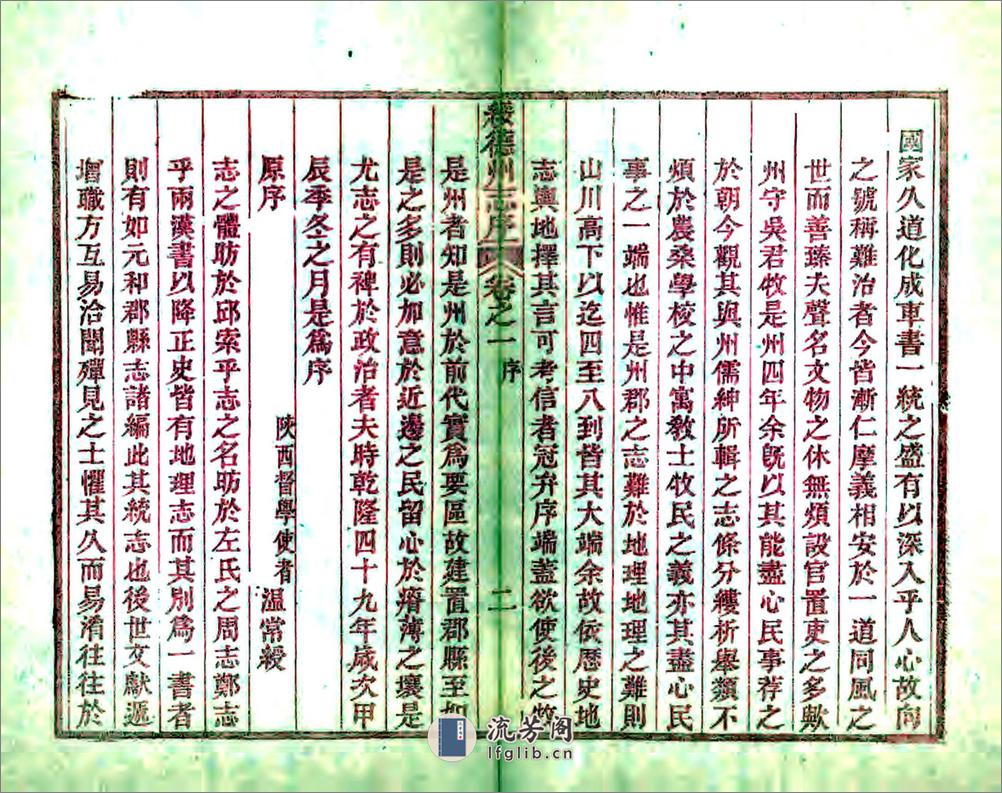 國家久道化成車書一統之盛有以深入乎人心故向
之號稱難治者今皆漸仁摩義相安於一道同風之
世而善臻夫聲名文物之休無煩設官置吏之多歟
州守吳君牧是州四年余旣以其能盡心民事荐之
於朝今觀其與州儒紳所輯之志條分縷析舉類不
煩於農桑學校之中寓敎士牧民之義亦其盡心民
事之一端也惟是州郡之志難於地理地理之難則
山川高下以迄四至八到皆其大端余故依歷史地
志輿地擇其言可考信者冠弁序端蓋欲使後之牧
綏德州志序 卷之一 序 二
是州者知是州於前代實爲要區故建置郡縣至如
是之多則必加意於近邊之民留心於瘠薄之壤是
尤志之有裨於政治者夫時乾隆四十九年歲次甲
辰季冬之月是爲序
原序 陜西督學使者 溫常綬
志之體昉於邱索乎志之名昉於左氏之周志鄭志
乎兩漢書以降正史皆有地理志而其別爲一書者
則有如元和郡縣志諸編此其統志也後世文獻遞
增職方互易洽聞殫見之士懼其久而易淆往往於
流芳阁
lfglib.cn